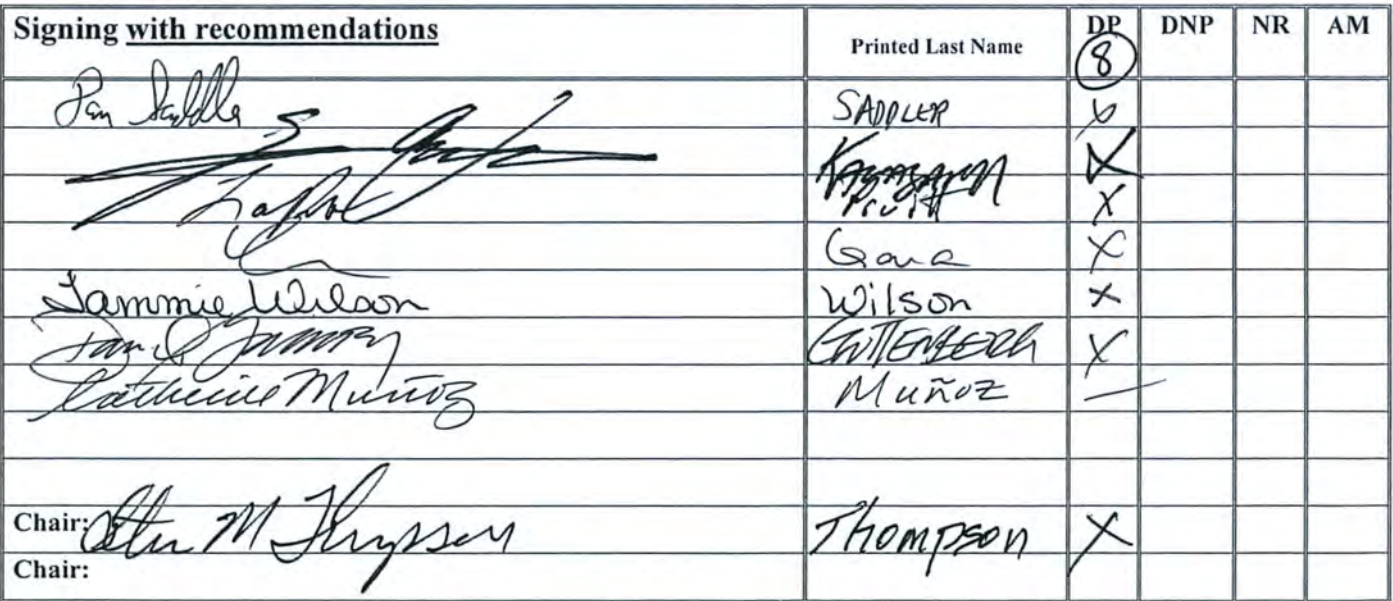 Signing with recommendations Printed Last Name DP DNP NR AM
8
Pam Saddler SADDLER X
X
Pruitt X
Gara X
Tammie Wilson Wilson X
GUTTENBERG X
Catherine Muñoz Muñoz —
Chair: Steve M Thompson Thompson X
Chair: